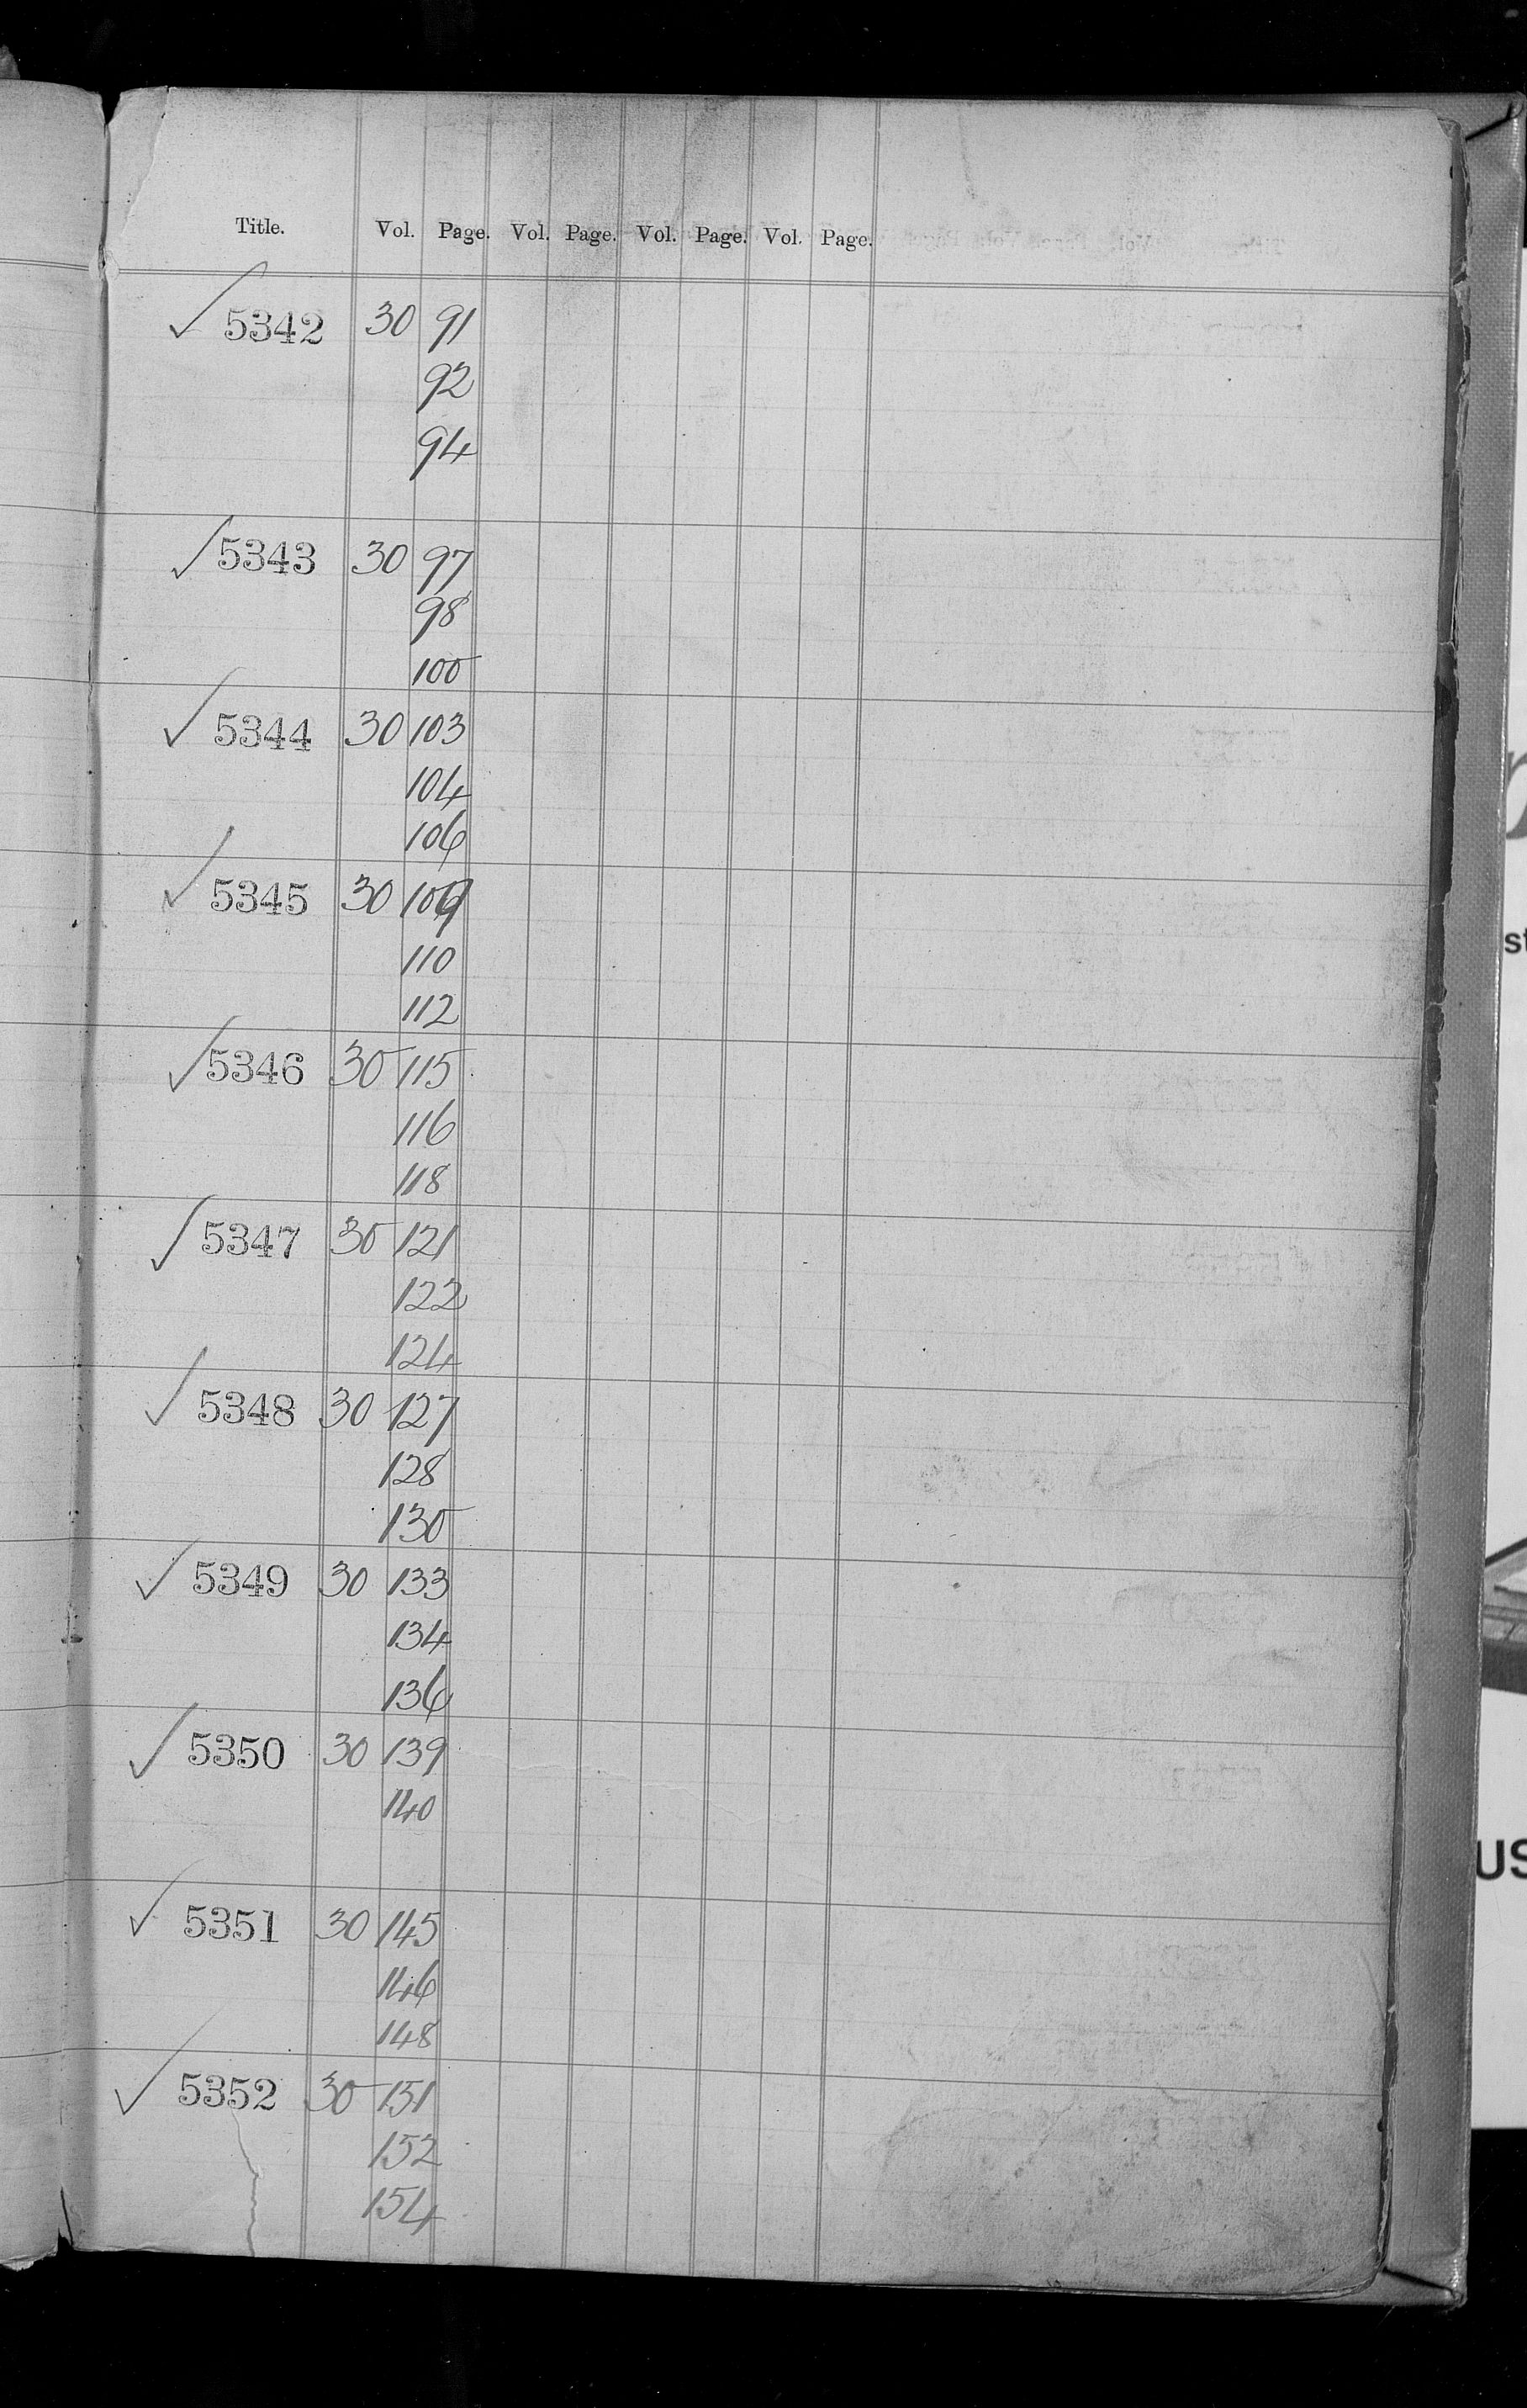 Title. Vol. Page. Vol. Page. Vol. Page. Vol. Page.
✓ 5342 30 91
92
94
✓ 5343 30 97
98
100
✓ 5344 30 103
104
106
✓ 5345 30 109
110
112
✓ 5346 30 115
116
118
✓ 5347 30 121
122
124
✓ 5348 30 127
128
130
✓ 5349 30 133
134
136
✓ 5350 30 139
140
✓ 5351 30 145
146
148
✓ 5352 30 151
152
154